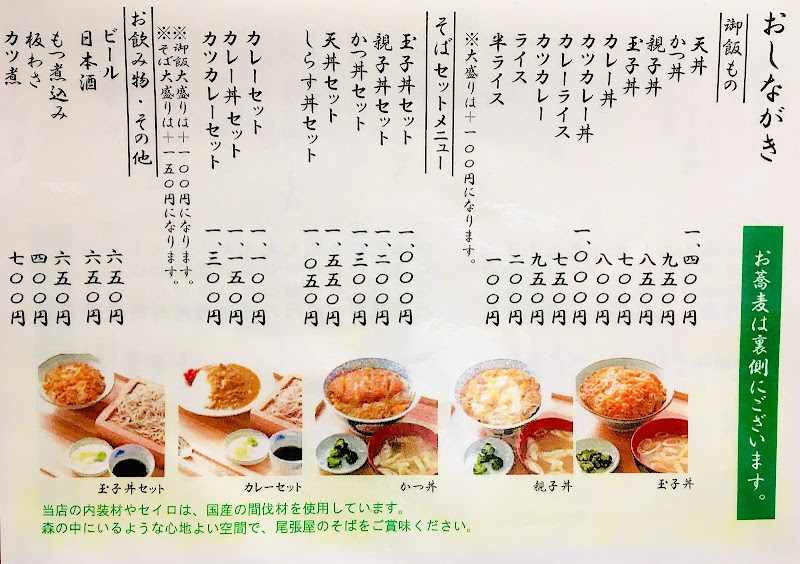 おしながき
お蕎麦は裏側にございます。
御飯もの
天丼 一、四〇〇円
かつ丼 九五〇円
親子丼 八五〇円
玉子丼 七〇〇円
カレー丼 八〇〇円
カツカレー丼 一、〇〇〇円
カレーライス 七五〇円
カツカレー 九五〇円
ライス 二〇〇円
半ライス 一〇〇円
※大盛りは＋一〇〇円になります。
そばセットメニュー
玉子丼セット 一、〇〇〇円
親子丼セット 一、二〇〇円
かつ丼セット 一、三〇〇円
天丼セット 一、五五〇円
しらす丼セット 一、〇五〇円
カレーセット 一、一〇〇円
カレー丼セット 一、一五〇円
カツカレーセット 一、三〇〇円
※御飯大盛りは＋一〇〇円になります。
※そば大盛りは＋一五〇円になります。
お飲み物・その他
ビール 六五〇円
日本酒 六五〇円
もつ煮込み 六五〇円
板わさ 四〇〇円
カツ煮 七〇〇円
玉子丼セット
カレーセット
かつ丼
親子丼
玉子丼
当店の内装材やセイロは、国産の間伐材を使用しています。
森の中にいるような心地よい空間で、尾張屋のそばをご賞味ください。